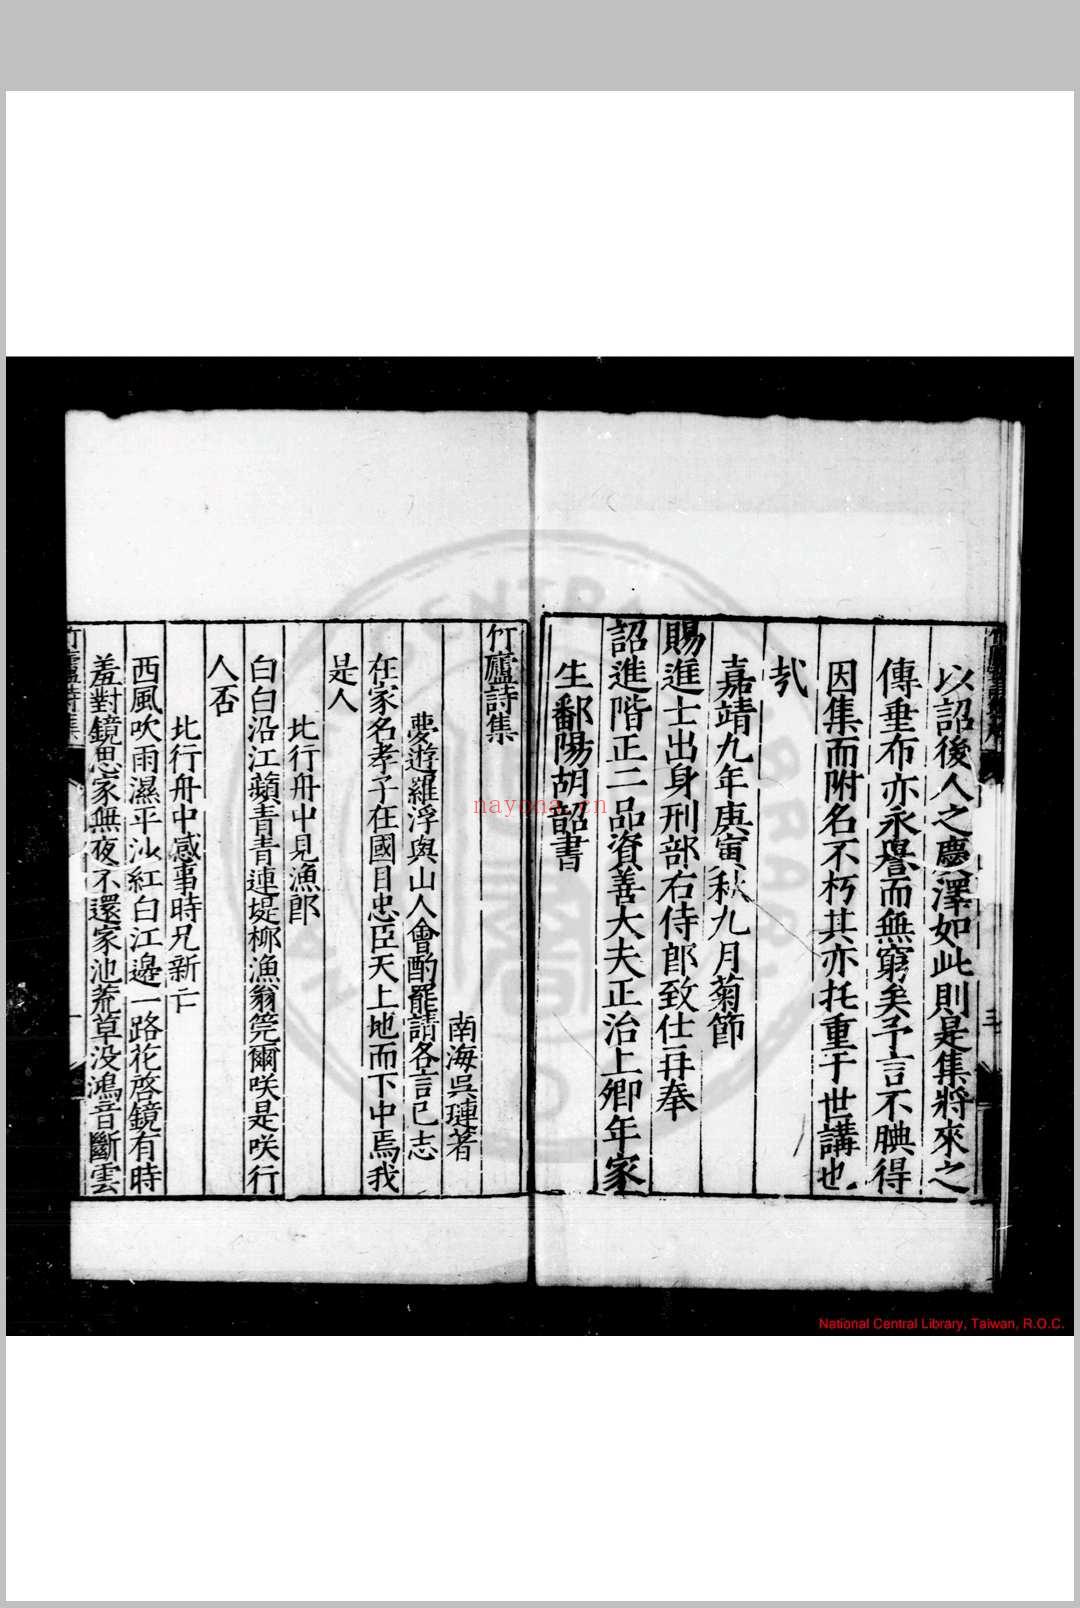 以詔後人之慶澤如此則是集將來之
傳垂布亦永譽而無窮矣予言不腆得
因集而附名不朽其亦托重于世講也
㢤
嘉靖九年庚寅秋九月菊節
賜進士出身刑部右侍郎致仕再奉
詔進階正二品資善大夫正治上卿年家
生鄱陽胡韶書
竹廬詩集
南海吳璉著
夢遊羅浮與山人會酌罷請各言已志
在家名孝子在國目忠臣天上地而下中焉我
是人
北行舟中見漁郎
白白沿江蘋青青連堤柳漁翁筦爾咲是咲行
人否
北行舟中感事時兄新亡
西風吹雨濕平沙紅白江邊一路花啓鏡有時
羞對鏡思家無夜不還家池荒草没鴻音斷雲
竹廬詩集
一
nayona.cn
National Central Library, Taiwan, R.O.C.